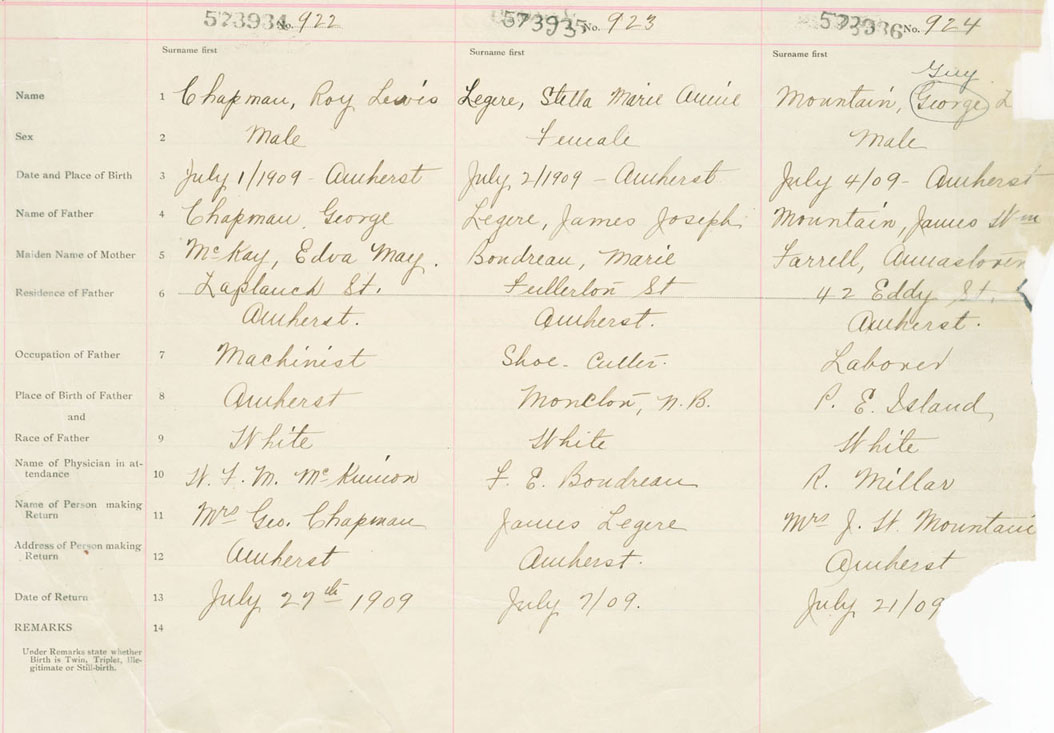 573934 No. 922 573935 No. 923 573936 No. 924
Surname first Surname first Surname first
Guy
Name 1 Chapman, Roy Lewis Legere, Stella Marie Annie Mountain, George
Sex 2 Male Female Male
Date and Place of Birth 3 July 1/1909 - Amherst July 2/1909 - Amherst July 4/09 - Amherst
Name of Father 4 Chapman, George Legere, James Joseph Mountain, James Wm
Maiden Name of Mother 5 McKay, Edva May. Boudreau, Marie Farrell,
Residence of Father 6 Laplanch St. Fullerton St 42 Eddy St.
Amherst. Amherst. Amherst.
Occupation of Father 7 Machinist Shoe-Cutter. Laborer
Place of Birth of Father 8 Amherst Moncton, N.B. P. E. Island
and
Race of Father 9 White White White
Name of Physician in at-
tendance 10 W. F. M. McKinnon F. E. Boudreau R. Millar
Name of Person making
Return 11 Mrs Geo. Chapman James Legere Mrs J. W. Mountain
Address of Person making
Return 12 Amherst Amherst. Amherst
Date of Return 13 July 27th 1909 July 7/09. July 21/09
REMARKS 14
Under Remarks state whether
Birth is Twin, Triplet, Ille-
gitimate or Still-birth.